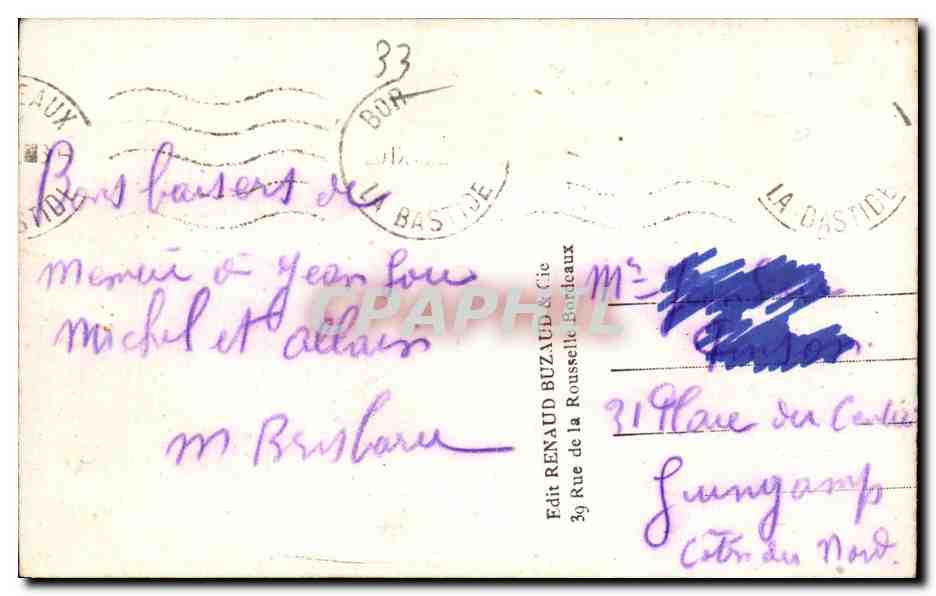 33
EAUX
BOR
LA BASTIDE
LA BASTIDE
STIDE
Bons baisers de
Memée à Jean Lou
Michel et Allain
M
Edit RENAUD BUZAUD & Cie
39 Rue de la Rousselle Bordeaux
CPAPHIL
Mr
31 Place du
Guingamp
Côtes du Nord.